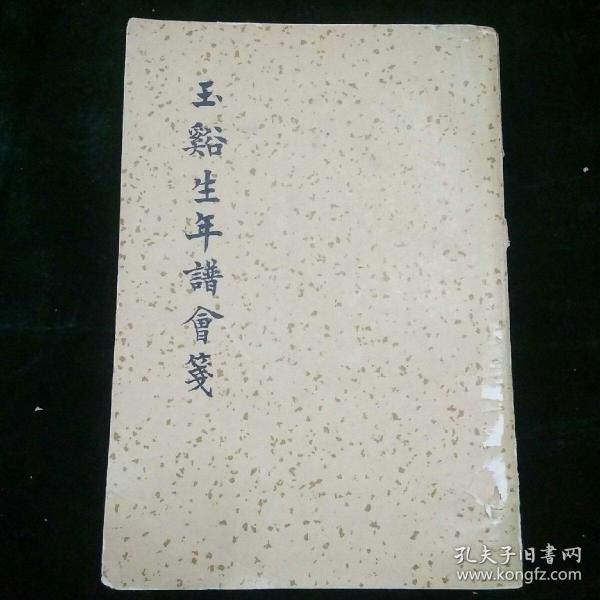 玉谿生年譜會箋
孔夫子旧書网
www.kongfz.com